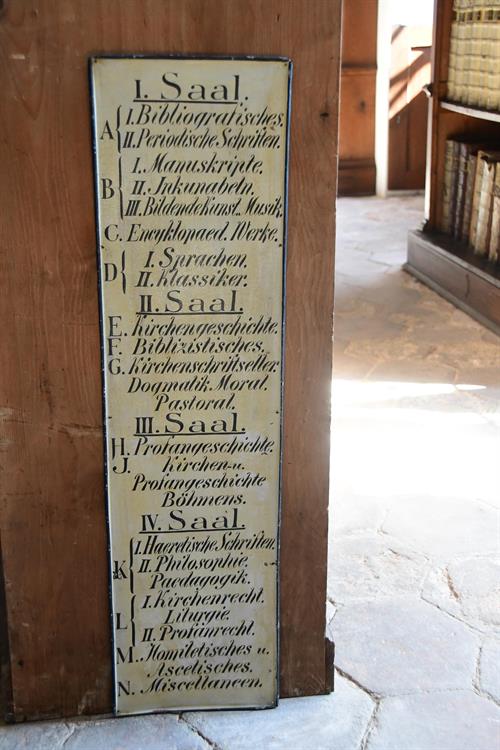 I. Saal.
A { I. Bibliografisches.
II. Periodische Schriften.
B { I. Manuskripte.
II. Inkunabeln.
III. Bildende Kunst. Musik.
C. Encyklopaed. Werke.
D { I. Sprachen.
II. Klassiker.
II. Saal.
E. Kirchengeschichte.
F. Biblizistisches.
G. Kirchenschriftseller.
Dogmatik. Moral.
Pastoral.
III. Saal.
H. Profangeschichte.
J. Kirchen- u.
Profangeschichte
Böhmens.
IV. Saal.
K { I. Haeretische Schriften.
II. Philosophie.
Paedagogik.
L { I. Kirchenrecht.
Liturgie.
II. Profanrecht.
M. Homiletisches u.
Ascetisches.
N. Miscellaneen.